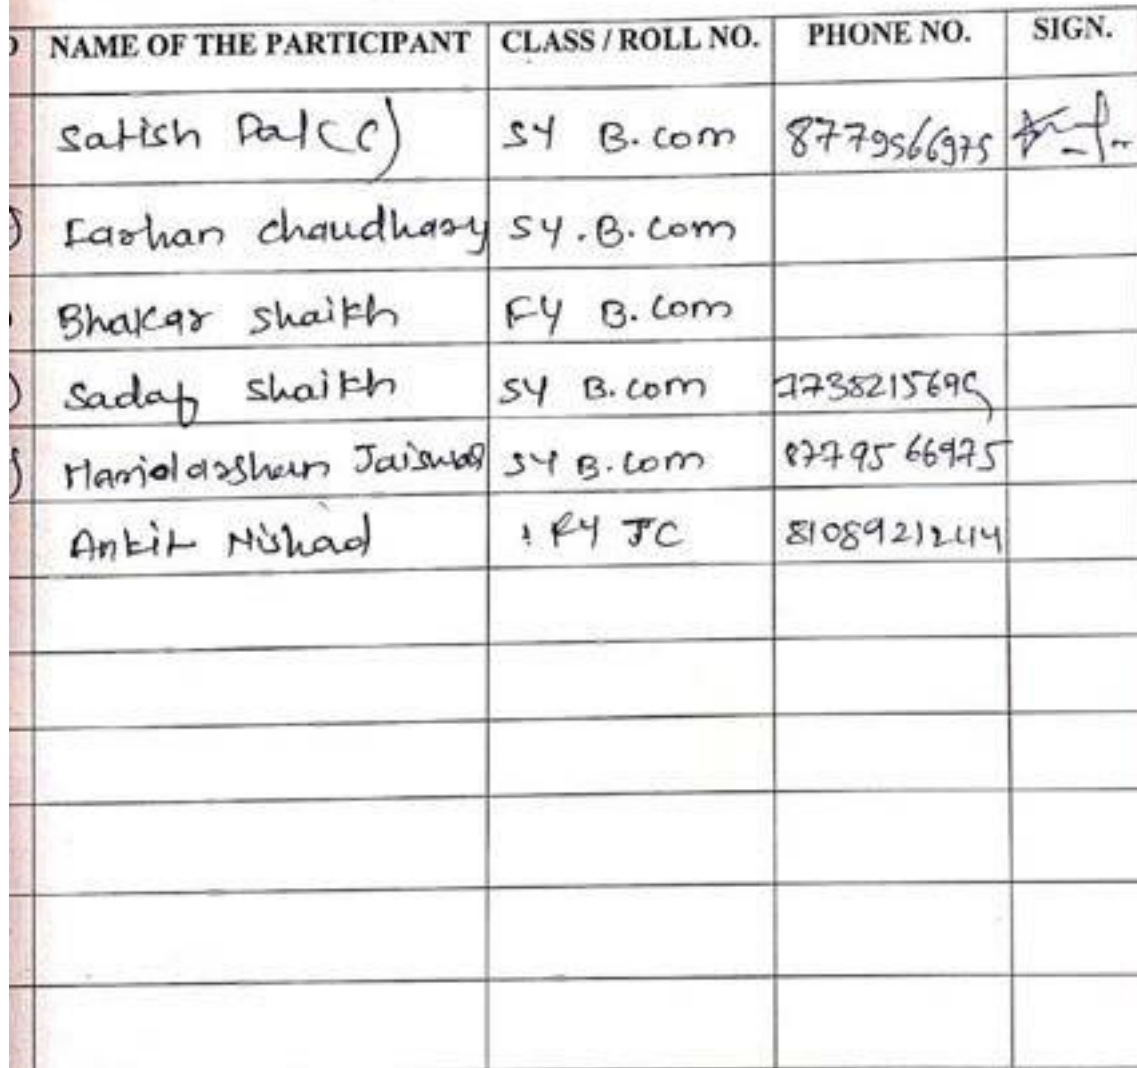 NAME OF THE PARTICIPANT CLASS / ROLL NO. PHONE NO. SIGN.
Satish Pal (C) SY B.com 8779566975
Farhan chaudhary SY.B.com
Bhakar shaikh FY B.com
Sadaf shaikh SY B.com 7738215695
Jaiswal SY B.com 8779566975
Ankit Nishad FY JC